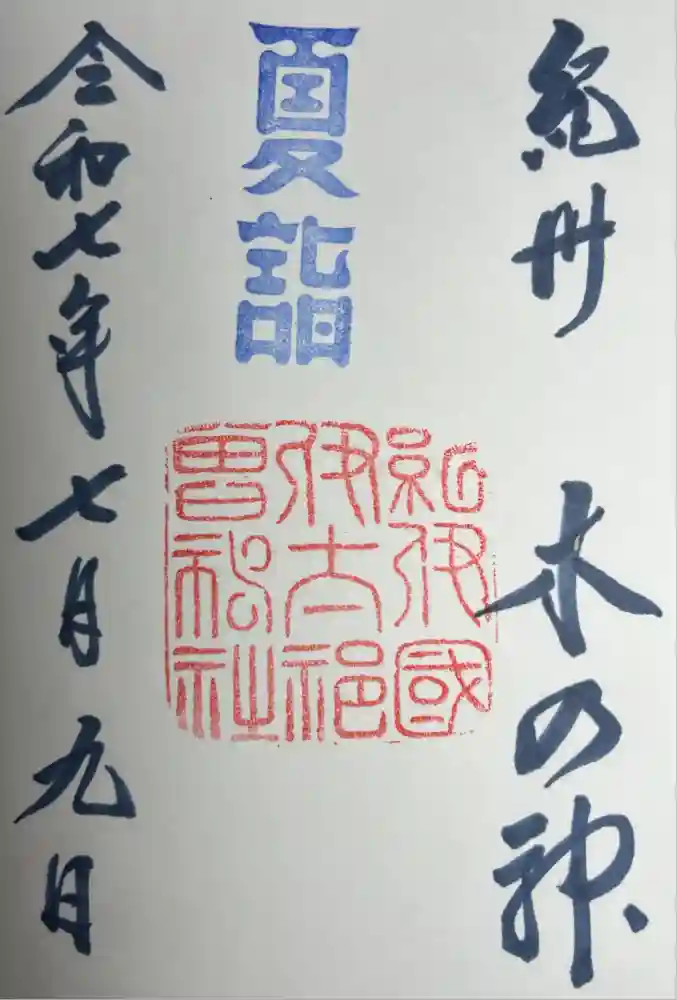 紀州 木の神
夏詣
紀伊國
伊太祁
曽神社
令和七年 七月 九日